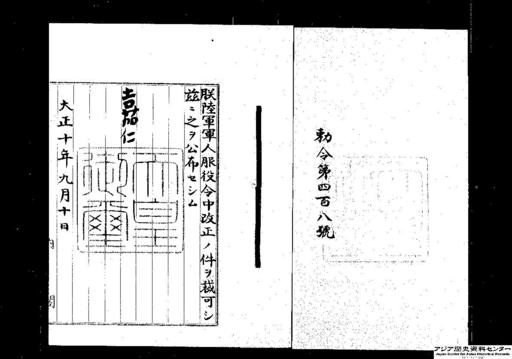 勅令第四百八號
朕陸軍軍人服役令中改正ノ件ヲ裁可シ
茲ニ之ヲ公布セシム
嘉仁
天皇御璽
大正十年九月十日
内閣
アジア歴史資料センター
Japan Center for Asian Historical Records